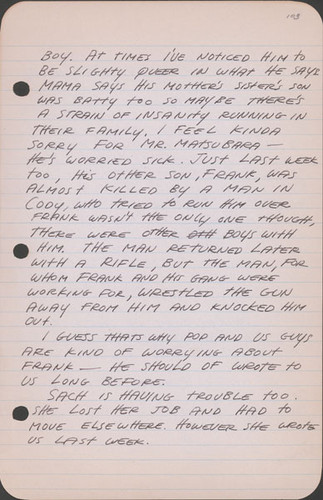 193
BOY. AT TIMES I'VE NOTICED HIM TO
BE SLIGHTY QUEER IN WHAT HE SAYS
MAMA SAYS HIS MOTHER'S SISTER'S SON
WAS BATTY TOO SO MAYBE THERE'S
A STRAIN OF INSANITY RUNNING IN
THEIR FAMILY. I FEEL KINDA
SORRY FOR MR. MATSUBARA —
HE'S WORRIED SICK. JUST LAST WEEK
TOO, HIS OTHER SON, FRANK, WAS
ALMOST KILLED BY A MAN IN
CODY, WHO TRIED TO RUN HIM OVER
FRANK WASN'T THE ONLY ONE THOUGH,
THERE WERE OTHER BOYS WITH
HIM. THE MAN RETURNED LATER
WITH A RIFLE, BUT THE MAN, FOR
WHOM FRANK AND HIS GANG WERE
WORKING FOR, WRESTLED THE GUN
AWAY FROM HIM AND KNOCKED HIM
OUT.
I GUESS THATS WHY POP AND US GUYS
ARE KIND OF WORRYING ABOUT
FRANK — HE SHOULD OF WROTE TO
US LONG BEFORE.
SACH IS HAVING TROUBLE TOO.
SHE LOST HER JOB AND HAD TO
MOVE ELSEWHERE. HOWEVER SHE WROTE
US LAST WEEK.